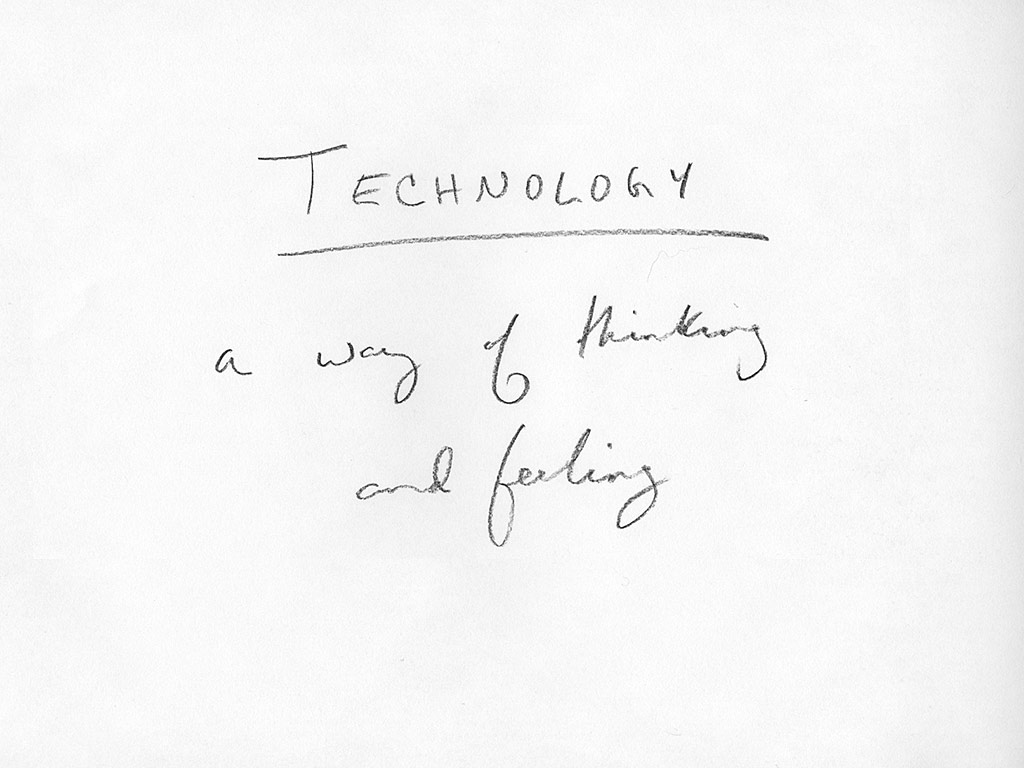 TECHNOLOGY
a way of thinking
and feeling